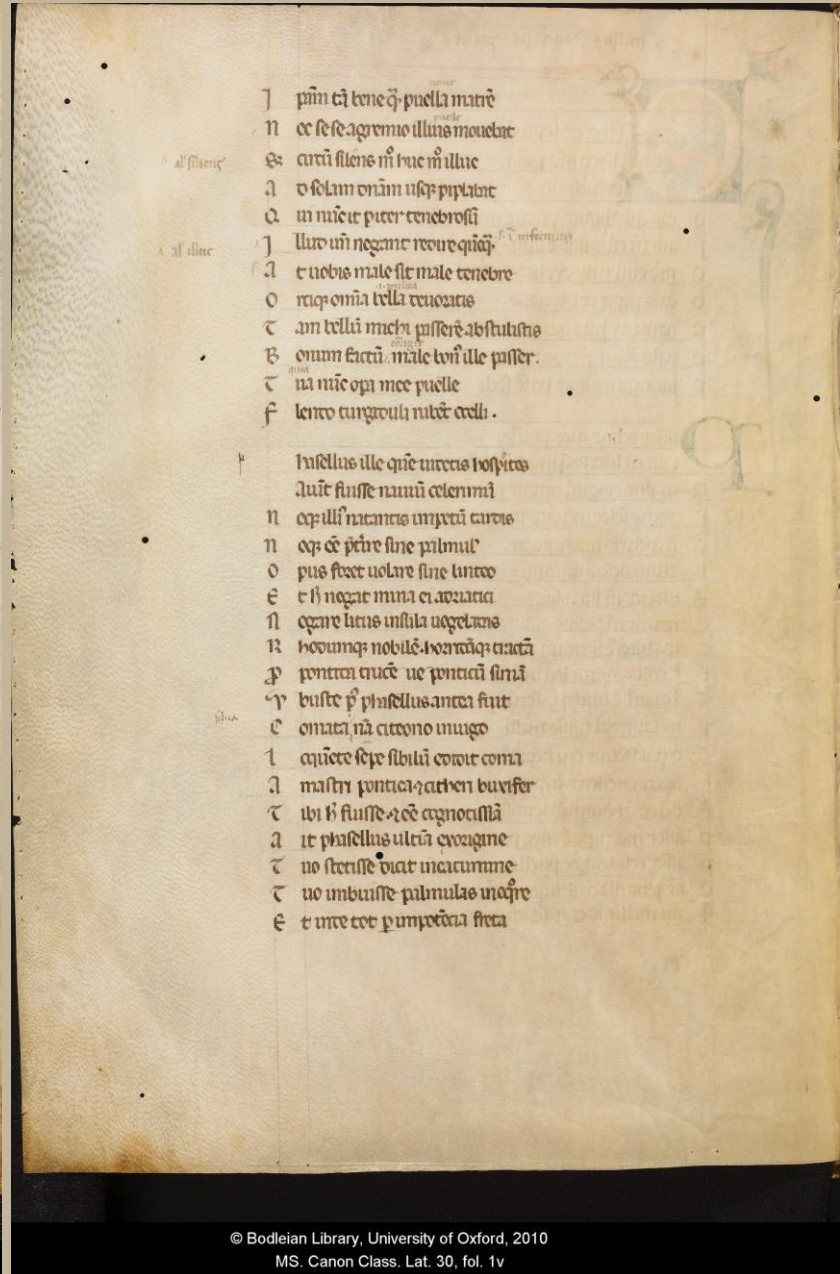 I pãm tã bene q̃ puella matrẽ
N ec sese agremio illius mouebat
S; circũ silens mõ huc mõ illuc
al' siliens
A d solam dnãm usq; piplabat
Q ui nũc it p iter tenebrosũ
I llud uñ negant redire quẽq̃
al' illuc
A t uobis male sit male tenebre
O rciq; omĩa bella deuoratis
T am bellũ michi passerẽ abstulistis
B onum factũ male bon' ille passer.
T ua nũc opa mee puelle
F lendo turgiduli rubẽt ocelli.
p hasellus ille quẽ uidetis hospites
Aiũt fuisse nauiũ celerimũ
N eq; illi' natantis impetũ tardis
N eq; eẽ pt̃ire siue palmul'
O pus foret uolare siue linteo
E t h̃ negat mina ei adriatici
N egare litus insula uegeladas
R hodumq; nobilẽ. horridãq; tractã
P pontida trucẽ ue ponticũ sinũ
V buste p̃ phasellus antea fuit
C omata nã citeono iuugo
L oquẽte sepe sibilũ edidit coma
A mastri pontica ⁊ citheri buxifer
T ibi h̃ fuisse ⁊ eẽ cognotissĩa
A it phasellus ultĩa exorigine
T uo stetisse dicit incacumine
T uo imbuisse palmulas ineq̃re
E t inde tot p impotẽcia freta
© Bodleian Library, University of Oxford, 2010
MS. Canon Class. Lat. 30, fol. 1v